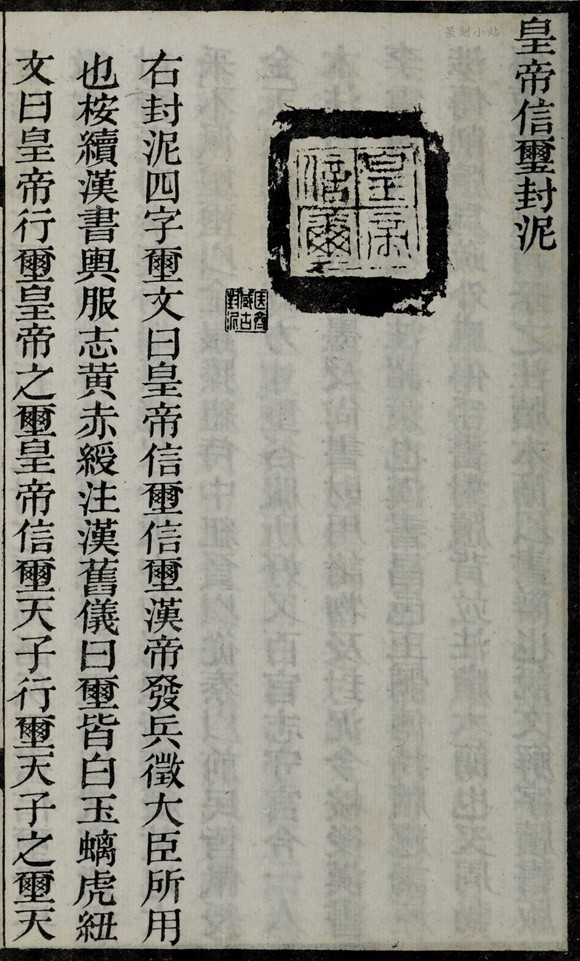 皇帝信壐封泥
篆刻小站
皇帝
信壐
右封泥四字壐文曰皇帝信壐信壐漢帝發兵徵大臣所用
也桉續漢書輿服志黄赤綬注漢舊儀曰壐皆白玉螭虎紐
文曰皇帝行壐皇帝之壐皇帝信壐天子行壐天子之壐天